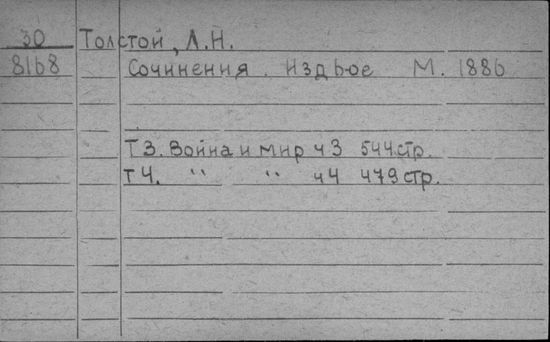 30 Толстой, Л.Н.
8168 Сочинения. Изд 6-ое М. 1886
Т 3. Война и мир ч 3 544 стр.
т 4. “ “ ч 4 479 стр.